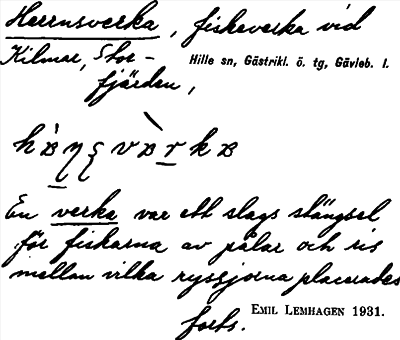 Herrnsverka, fiskeverka vid
Kilmar, Stor-
Hille sn, Gästrikl. ö. tg, Gävleb. l.
fjärden,
En verka var ett slags stängsel
för fiskarna av pålar och ris
mellan vilka ryssjorna placerades
forts.
EMIL LEMHAGEN 1931.